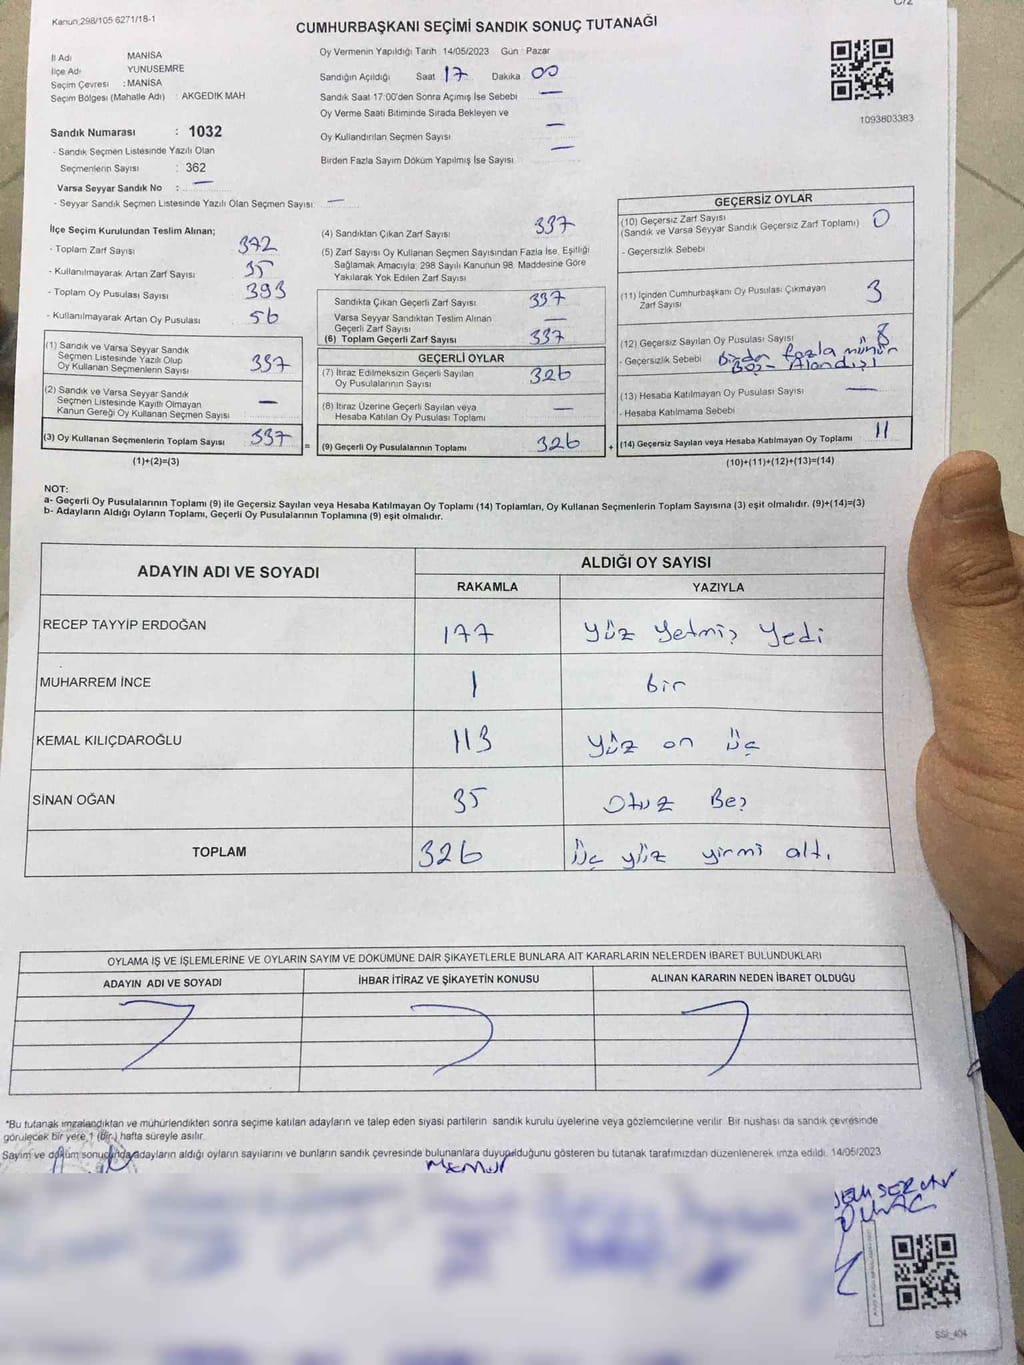 Kanun 298/105 6271/18-1
C/2
CUMHURBAŞKANI SEÇİMİ SANDIK SONUÇ TUTANAĞI
İl Adı MANİSA
İlçe Adı YUNUSEMRE
Seçim Çevresi : MANİSA
Seçim Bölgesi (Mahalle Adı) : AKGEDİK MAH
Sandık Numarası : 1032
- Sandık Seçmen Listesinde Yazılı Olan
Seçmenlerin Sayısı : 362
Varsa Seyyar Sandık No : —
- Seyyar Sandık Seçmen Listesinde Yazılı Olan Seçmen Sayısı: —
Oy Vermenin Yapıldığı Tarih 14/05/2023 Gün : Pazar
Sandığın Açıldığı Saat 17 Dakika 00
Sandık Saat 17:00'den Sonra Açımış İse Sebebi —
Oy Verme Saati Bitiminde Sırada Bekleyen ve
Oy Kullandırılan Seçmen Sayısı —
Birden Fazla Sayım Döküm Yapılmış İse Sayısı —
1093803383
İlçe Seçim Kurulundan Teslim Alınan;
- Toplam Zarf Sayısı 372
- Kullanılmayarak Artan Zarf Sayısı 35
- Toplam Oy Pusulası Sayısı 393
- Kullanılmayarak Artan Oy Pusulası 56
(1) Sandık ve Varsa Seyyar Sandık
Seçmen Listesinde Yazılı Olup
Oy Kullanan Seçmenlerin Sayısı 337
(2) Sandık ve Varsa Seyyar Sandık
Seçmen Listesinde Kayıtlı Olmayan
Kanun Gereği Oy Kullanan Seçmen Sayısı —
(3) Oy Kullanan Seçmenlerin Toplam Sayısı 337 =
(1)+(2)=(3)
(4) Sandıktan Çıkan Zarf Sayısı 337
(5) Zarf Sayısı Oy Kullanan Seçmen Sayısından Fazla İse, Eşitliği
Sağlamak Amacıyla; 298 Sayılı Kanunun 98. Maddesine Göre
Yakılarak Yok Edilen Zarf Sayısı
Sandıkta Çıkan Geçerli Zarf Sayısı 337
Varsa Seyyar Sandıktan Teslim Alınan
Geçerli Zarf Sayısı —
(6) Toplam Geçerli Zarf Sayısı 337
GEÇERLİ OYLAR
(7) İtiraz Edilmeksizin Geçerli Sayılan
Oy Pusulalarının Sayısı 326
(8) İtiraz Üzerine Geçerli Sayılan veya
Hesaba Katılan Oy Pusulası Toplamı —
(9) Geçerli Oy Pusulalarının Toplamı 326 +
GEÇERSİZ OYLAR
(10) Geçersiz Zarf Sayısı
(Sandık ve Varsa Seyyar Sandık Geçersiz Zarf Toplamı) 0
- Geçersizlik Sebebi
(11) İçinden Cumhurbaşkanı Oy Pusulası Çıkmayan
Zarf Sayısı 3
(12) Geçersiz Sayılan Oy Pusulası Sayısı 8
- Geçersizlik Sebebi Birden fazla mühür
Boş- Alandışı
(13) Hesaba Katılmayan Oy Pusulası Sayısı —
- Hesaba Katılmama Sebebi
(14) Geçersiz Sayılan veya Hesaba Katılmayan Oy Toplamı 11
(10)+(11)+(12)+(13)=(14)
NOT:
a- Geçerli Oy Pusulalarının Toplamı (9) ile Geçersiz Sayılan veya Hesaba Katılmayan Oy Toplamı (14) Toplamları, Oy Kullanan Seçmenlerin Toplam Sayısına (3) eşit olmalıdır. (9)+(14)=(3)
b- Adayların Aldığı Oyların Toplamı, Geçerli Oy Pusulalarının Toplamına (9) eşit olmalıdır.
ADAYIN ADI VE SOYADI ALDIĞI OY SAYISI
RAKAMLA YAZIYLA
RECEP TAYYİP ERDOĞAN 177 Yüz Yetmiş Yedi
MUHARREM İNCE 1 bir
KEMAL KILIÇDAROĞLU 113 Yüz on üç
SİNAN OĞAN 35 Otuz Beş
TOPLAM 326 Üç yüz yirmi altı
OYLAMA İŞ VE İŞLEMLERİNE VE OYLARIN SAYIM VE DÖKÜMÜNE DAİR ŞİKAYETLERLE BUNLARA AİT KARARLARIN NELERDEN İBARET BULUNDUKLARI
ADAYIN ADI VE SOYADI İHBAR İTİRAZ VE ŞİKAYETİN KONUSU ALINAN KARARIN NEDEN İBARET OLDUĞU
*Bu tutanak imzalandıktan ve mühürlendikten sonra seçime katılan adayların ve talep eden siyasi partilerin sandık kurulu üyelerine veya gözlemcilerine verilir. Bir nushası da sandık çevresinde
görülecek bir yere 1 (bir) hafta süreyle asılır.
Sayım ve döküm sonucunda adayların aldığı oyların sayılarını ve bunların sandık çevresinde bulunanlara duyurulduğunu gösteren bu tutanak tarafımızdan düzenlenerek imza edildi. 14/05/2023
Memur
SSİ_404